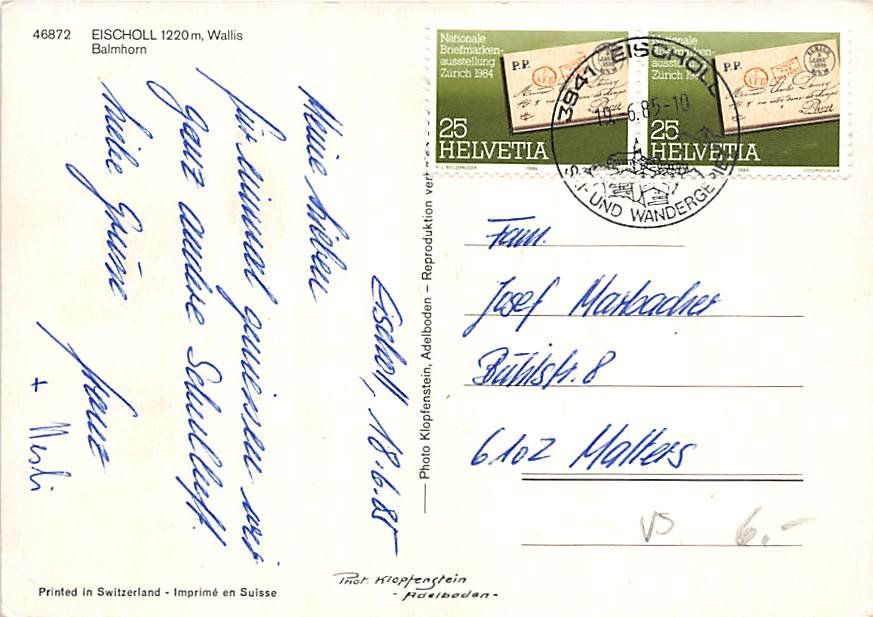 46872 EISCHOLL 1220 m, Wallis
Balmhorn
Eischoll, 18.6.85
Meine Lieben
für einmal geniessen wir
ganz andere Schulluft.
Liebe Grüsse
Franz
+
Printed in Switzerland - Imprimé en Suisse
Phot. Klopfenstein
- Adelboden -
Photo Klopfenstein, Adelboden – Reproduktion verb
Nationale
Briefmarken-
ausstellung
Zürich 1984
P.P.
25
HELVETIA
1984
Nationale
Briefmarken-
ausstellung
Zürich 1984
P.P.
25
HELVETIA
1984
3941 EISCHOLL
19.6.85-10
SKI- UND WANDERGEBIET
Fam.
Josef Marbacher
Bühlstr. 8
6102 Malters
VS 6.-